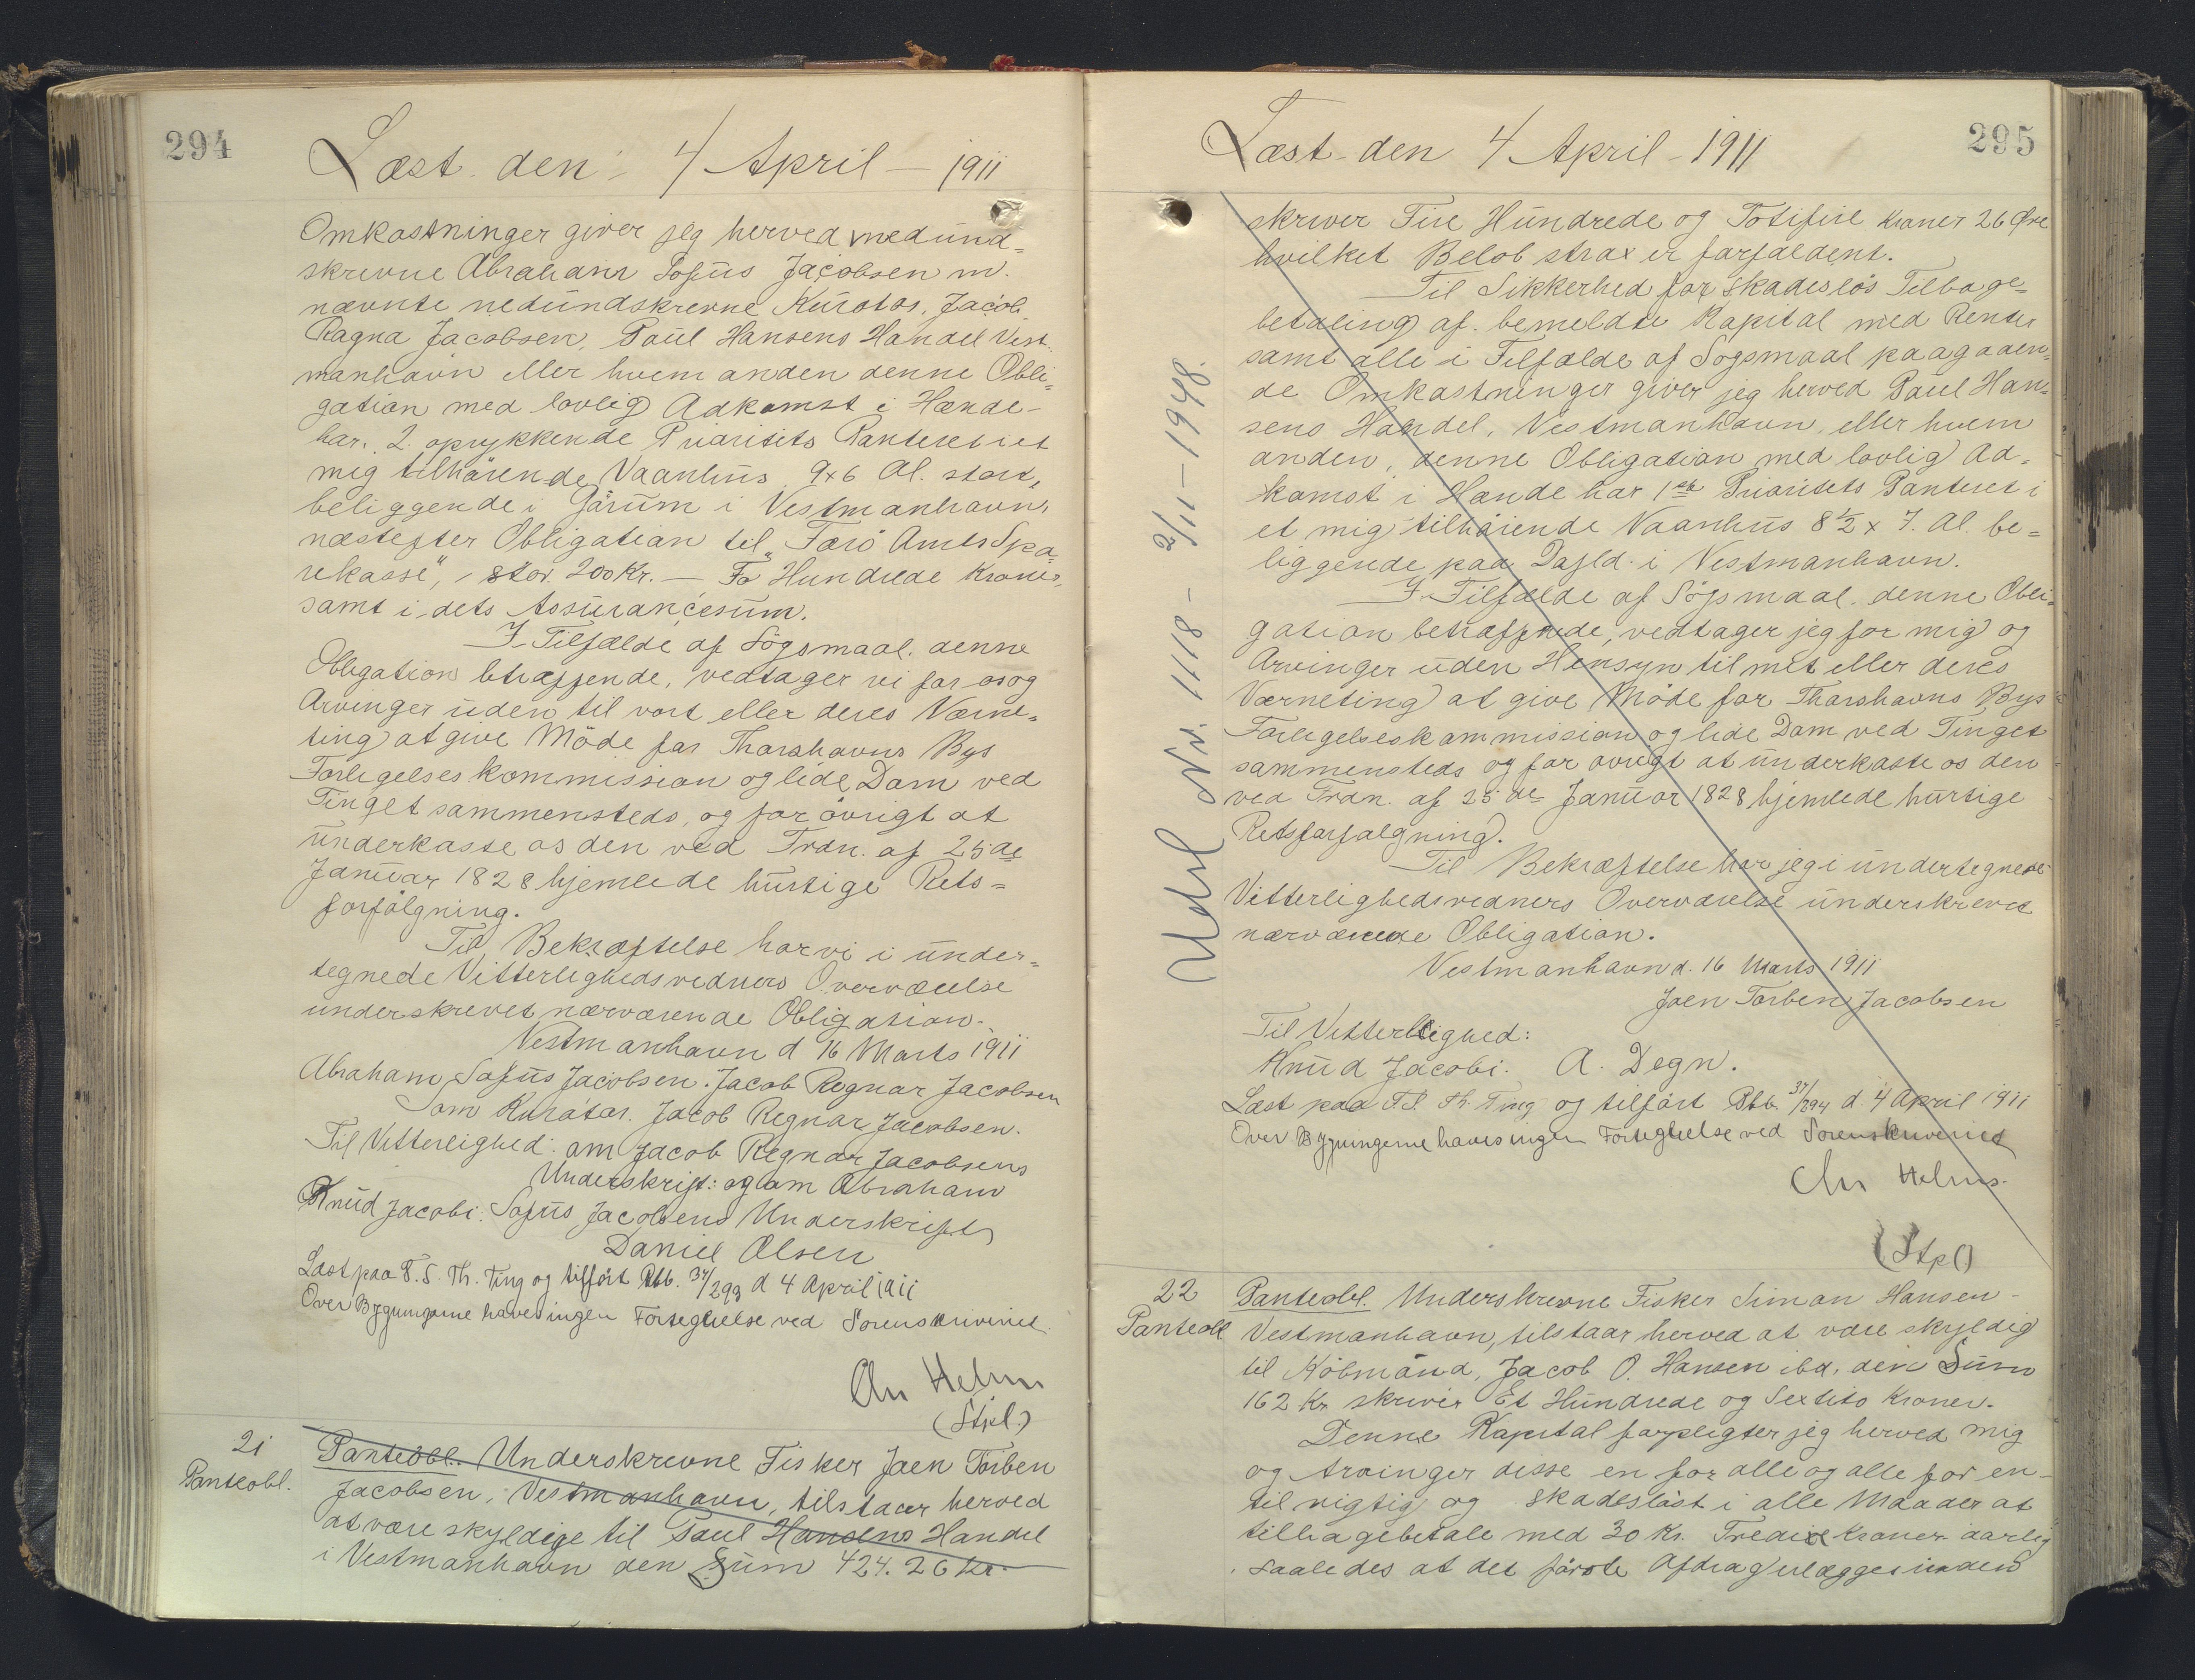 294
Læst den 4 April - 1911
Omkostninger giver jeg herved nedund=
skrevne Abraham Sofus Jacobsen m.
nævnte nedundskrevne Kurator, Jacob
Ragna Jacobsen, Poul Hansens Handel Vest.
manhavn eller hvem anden denne Obli=
gation med lovlig Adkomst i Hænde-
har. 2. oprykkende Prioritets Panteret i et
mig tilhörende Vaanhus 9x6 Al. stort,
beliggende i Gärum i Vestmanhavn,
næstefter Obligation til "Færö Amts Spa=
rekasse", stor 200 Kr. — To Hundrede Kroner,
samt i dets Assurancesum.
I Tilfælde af Sögsmaal denne
Obligation betræffende, vedtager vi for os og
Arvinger uden til vort eller deres Værne=
ting at give Möde for Thorshavns Bys
Forligelseskommission og lide Dom ved
Tinget sammensteds, og for övrigt at
underkaste os den ved Frdn. af 25 de
Januar 1828 hjemlede hurtige Rets=
forfölgning.
Til Bekræftelse har vi i under=
tegnede Vitterlighedsvidners Overværelse
underskrevet nærværende Obligation.
Vestmanhavn d 16 Marts 1911
Abraham Sofus Jacobsen. Jacob Regnar Jacobsen
Som Kurator. Jacob Regnar Jacobsen.
Til Vitterlighed: om Jacob Regnar Jacobsens
Underskrift: og om Abraham
Knud Jacobi. Sofus Jacobsens Underskrift
Daniel Olsen
Læst paa F. S. Th. Ting og tilfört Ptb. 37/293 d 4 April 1911
Over Bygningerne haves ingen Fortegnelse ved Sorenskriveriet.
Chr Helms
(Stpl.)
21
Panteobl.
Panteobl. Underskrevne Fisker Joen Torben
Jacobsen, Vestmanhavn, tilstaar herved
at være skyldige til Poul Hansens Handel
i Vestmanhavn den Sum 424.26 Kr.
295
Læst den 4 April - 1911
Udsl Nr. 1118 - 2/11-1948.
skriver Fire Hundrede og Totifire Kroner 26 Øre
hvilket Belob strax er forfaldent.
Til Sikkerhed for skadeslös Tilbage=
betaling af bemeldte Kapital med Renter
samt alle i Tilfælde af Sögsmaal paagaaen=
de Omkostninger giver jeg herved Poul Han=
sens Handel, Vestmanhavn, eller hvem
anden, denne Obligation med lovlig Ad=
komst i Hænde har 1ste Prioritets Panteret i
et mig tilhörende Vaanhus 8½ x 7. Al. be=
liggende paa Dafld. i Vestmanhavn.
I Tilfælde af Sögsmaal denne Obli=
gation betræffende, vedtager jeg for mig og
Arvinger uden Hensyn til mit eller deres
Værneting at give Möde for Thorshavns Bys
Forligelseskommission og lide Dom ved Tinget
sammensteds og for ovrigt at underkaste os den
ved Frdn. af 25 de Januar 1828 hjemlede hurtige
Retsforfolgning.
Til Bekræftelse har jeg i undertegnede
Vitterlighedsvidners Overværelse underskrevet
nærværende Obligation.
Vestmanhavn d. 16 Marts 1911
Joen Torben Jacobsen
Til Vitterlighed:
Knud Jacobi. A. Degn.
Læst paa F.S. Th. Ting og tilfört Ptb. 37/294 d. 4 April 1911
Over Bygningerne haves ingen Fortegnelse ved Sorenskriveriet
Chr Helms.
(Stpl)
22
Panteobl
Panteobl. Underskrevne Fisker Simon Hansen -
Vestmanhavn, tilstaar herved at være skyldig
til Köbmand, Jacob O. Hansen ibd. den Sum
162 Kr skriver Et Hundrede og Sextito Kroner.
Denne Kapital forpligter jeg herved mig
og Arvinger disse en for alle og alle for en-
til rigtig og skadeslöst i alle Maader at
tilbagebetale med 30 Kr. Tredive Kroner aarlig
saaledes at det förste Afdrag erlægges inden